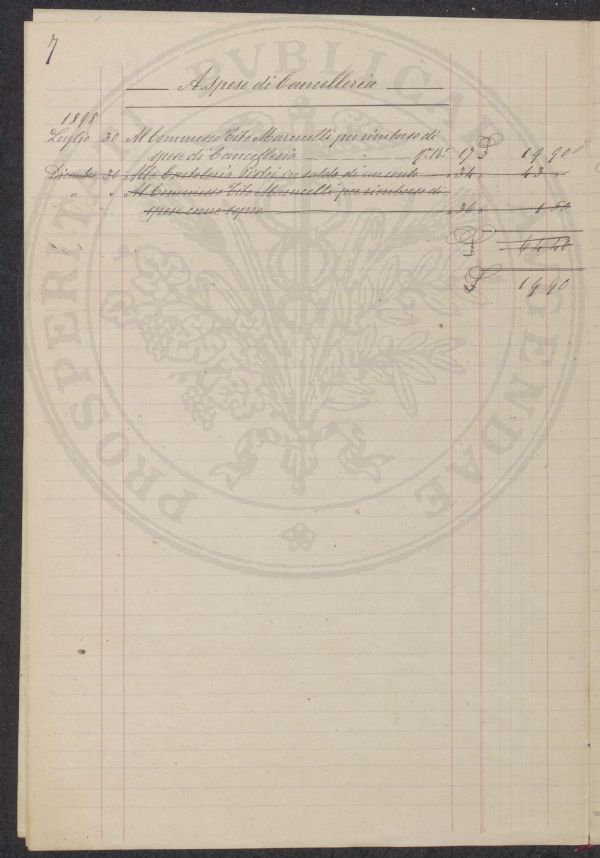 7
A spese di Cancelleria
1898
Luglio 30 Al Commesso Tito Marucelli per rimborso di
spese di Cancelleria 17 £ 19 90
Dicembre 30 Alla Cartoleria in saldo di un conto " 34 " 43 "
" " Al Commesso Tito Marucelli per rimborso di
spese come sopra " 36 " 1 50
£ 64 40
£ 19 90
PROSPERITATI PVBLICAE AVGENDAE